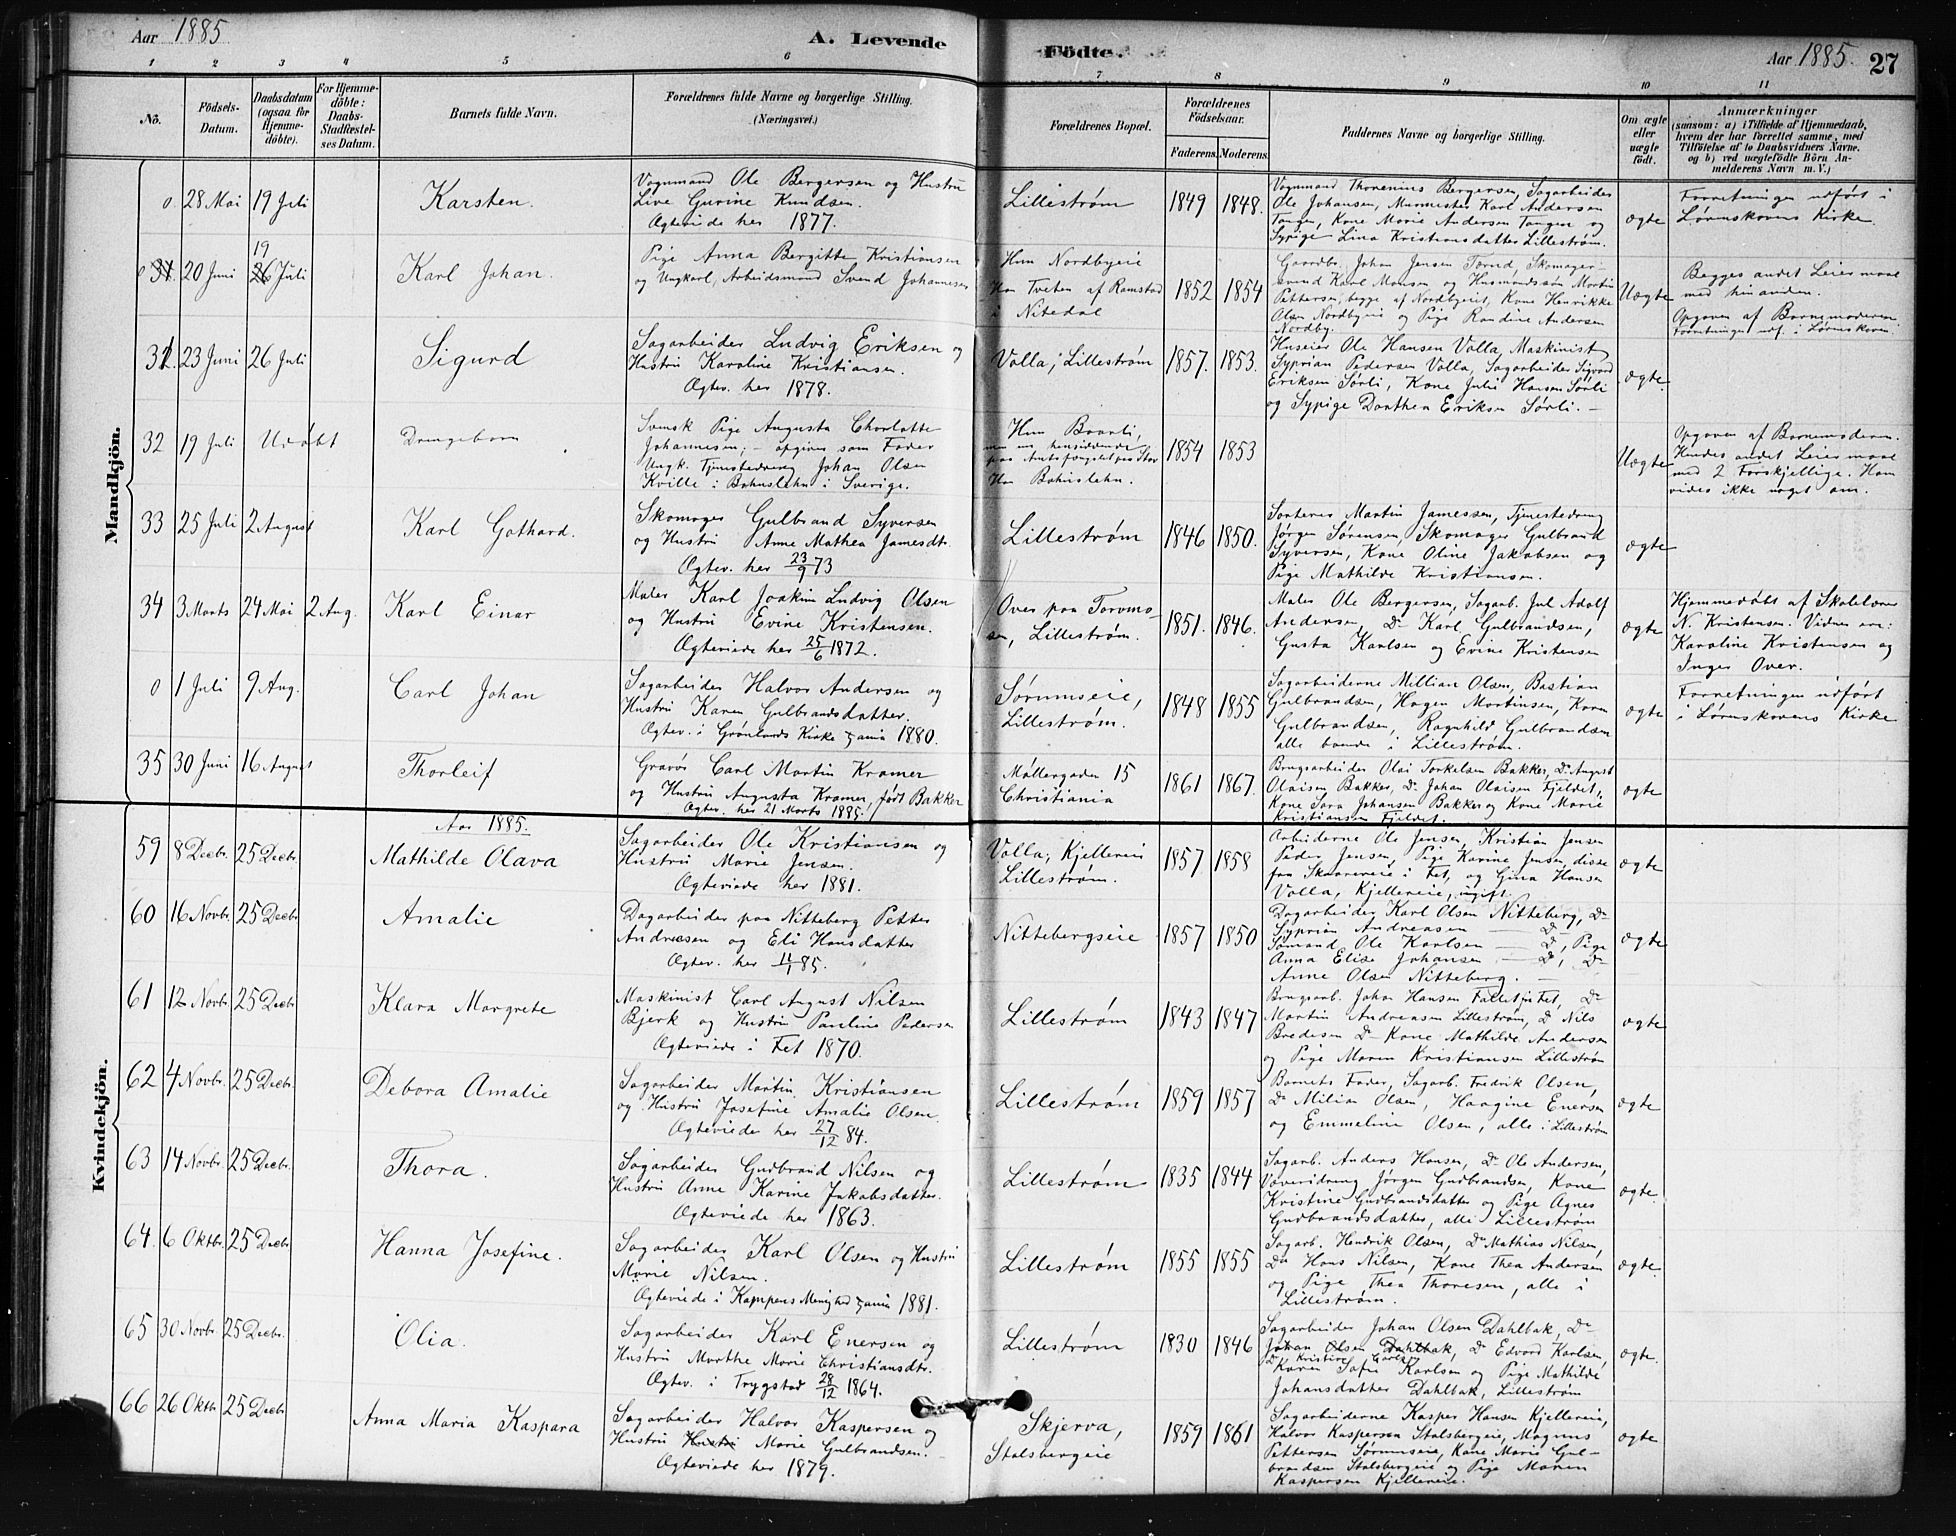 Aar 1885
A. Levende
Födte.
Aar 1885.
27
1 2 3 4 5 6 7 8 9 10 11
No.
Födsels-Datum.
Daabsdatum (ogsaa for Hjemmedöbte).
For Hjemmedöbte: Daabs-Stadfæstelses Datum.
Barnets fulde Navn.
Forældrenes fulde Navne og borgerlige Stilling.
(Næringsvei.)
Forældrenes Bopæl.
Forældrenes Födselsaar.
Faderens. Moderens.
Faddernes Navne og borgerlige Stilling.
Om ægte eller uægte födt.
Anmærkninger
(saasom: a) i Tilfælde af Hjemmedaab, hvem der har forrettet samme, med Tilföielse af to Daabsvidners Navne, og b) ved uægtefödte Börn Anmelderens Navn m. V.)
Mandkjön.
0. 28 Mai 19 Juli
Karsten.
Vognmand Ole Bergersen og Hustru
Live Gurine Knudsen.
Ægteviede her 1877.
Lillestrøm
1849 1848.
Vognmand Thorenius Bergersen, Sagarbeider
Ole Johansen, Murmester Karl Andersen
Tangen, Kone Marie Andersen Tangen og
Sypige Lina Kristiansdatter Lillestrøm.
ægte
Forretningen udført i
Lørenskovens Kirke
0 31 20 Juni 19 26 Juli
Karl Johan.
Pige Anna Bergitte Kristiansen
og Ungkarl, Arbeidsmand Svend Johannesen
Hun Nordbyeie
Han Tveten af Ramstad
i Nitedal
1852 1854
Gaardbr. Johan Jensen Tornd, Skomager-
svend Karl Monsen og Husmandssøn Martin
Pettersen, begge af Nordbyeiet, Kone Henrikke
Olsen Nordbyeie og Pige Randine Andersen
Nordby.
Uægte
Begges andet Leiermaal
med hinanden.
Opgaven af Barnemoderen
Forretningen udf. i Lørenskoven
31. 23 Juni 26 Juli
Sigurd
Sagarbeider Ludvig Eriksen og
Hustru Karoline Kristiansen.
Ægtev. her 1878.
Volla, Lillestrøm
1857. 1853.
Huseier Ole Hansen Volla, Maskinist
Syprian Pedersen Volla, Sagarbeider Sigvard
Eriksen Sørli, Kone Julie Hansen Sørli
og Sypige Dorthea Eriksen Sørli.
ægte.
32 19 Juli Udöbt Drengebarn
Svensk Pige Augusta Charlotte
Johannesen; - opgiver som Fader
Ungk. Tjenestedreng Johan Olsen
Kville i Bohuslehn i Sverige.
Han Bohuslehn.
1854 1853
Uægte
Opgaven af Barnemoderen.
Hendes andet Leiermaal
med 2 Forskjellige. Ham
vides ikke noget om.
33 25 Juli 2 August
Karl Gothard.
Skomager Gulbrand Syversen
og Hustru Anne Mathea Jamesdt.
Ægtev. her 23/9 73
Lillestrøm
1846 1850.
Sorterer Martin Jamessen, Tjenestedreng
Jørgen Sørensen, Skomager Gulbrand
Syversen, Kone Oline Jakobsen og
Pige Mathilde Kristiansen.
ægte
34 3. Marts 24 Mai 2 Aug.
Karl Einar
Maler Karl Joakim Ludvig Olsen
og Hustru Evine Kristensen.
Ægteviede her 25/6 1872.
Over paa Torvmo-
sen, Lillestrøm.
1851. 1846.
Maler Ole Bergersen, Sagarb. Jul Adolf
Andersen, Do Karl Gulbrandsen,
Gusta Karlsen og Evine Kristensen
ægte
Hjemmedøbt af Skolelærer
N. Kristensen. Vidner ere:
Karoline Kristensen og
Inger Over.
0 1 Juli 9 Aug.
Carl Johan
Sagarbeider Halvor Andersen og
Hustru Karen Gulbrandsdatter.
Ægtev. i Grønlands Kirke Xania 1880.
Sørumseie,
Lillestrøm.
1848 1855
Sagarbeiderne Millian Olsen, Bastian
Gulbrandsen, Hagen Martinsen, Karen
Gulbrandsen, Ragnhild Gulbrandsen
alle boende i Lillestrøm.
ægte
Forretningen udført
i Lørenskovens Kirke
35 30 Juni 16 August
Thorleif
Gravør Carl Martin Kramer
og Hustru Augusta Kramer, født Bakker
Ægtev. her 21 Marts 1885.
Møllergaden 15
Christiania
1861 1867.
Brugsarbeider Olai Torkelsen Bakker, Do August
Olaisen Bakker, Do Johan Olaisen Fjeldet,
Kone Sara Johansen Bakker og Kone Marie
Kristiansen Fjeldet.
ægte
Kvindekjön.
Aar 1885.
59 8 Decbr. 25 Decbr.
Mathilde Olava
Sagarbeider Ole Kristiansen og
Hustru Marie Jensen.
Ægteviede her 1881.
Volla, Kjellereie
Lillestrøm.
1857 1858
Arbeiderne Ole Jensen, Kristian Jensen
Peder Jensen, Pige Karine Jensen, disse
fra Skaarereie i Fet, og Gina Hansen
Volla, Kjellereie, ugift.
ægte
60 16 Novbr. 25 Decbr.
Amalie
Dagarbeider paa Nitteberg Petter
Andreasen og Eli Hansdatter
Ægtev. her 11/1 85.
Nittebergseie
1857 1850
Dagarbeider Karl Olsen Nitteberg, Do
Syprian Andreasen — Do,
Sømand Ole Karlsen — Do, Pige
Anna Elise Johansen — Do, Do
Anne Olsen Nitteberg. —
ægte
61 12 Novbr. 25 Decbr.
Klara Margrete
Maskinist Carl August Nilsen
Bjerk og Hustru Pauline Pedersen
Ægteviede i Fet 1870.
Lillestrøm
1843 1847
Brugsarb. Johan Hansen Faldet i Fet, Do
Martin Andreasen Lillestrøm, Do Nils
Bredesen Do Kone Mathilde Andersen
og Pige Maren Kristiansen Lillestrøm
ægte
62 4 Novbr. 25 Decbr.
Debora Amalie
Sagarbeider Martin Kristiansen
og Hustru Josefine Amalie Olsen
Ægteviede her 27/12 84.
Lillestrøm
1859 1857
Barnets Fader, Sagarb. Fredrik Olsen,
Do Milian Olsen, Haagine Enersen
og Emmeline Olsen, alle i Lillestrøm
ægte
63 14 Novbr. 25 Decbr.
Thora.
Sagarbeider Gudbrand Nilsen og
Hustru Anne Karine Jakobsdatter.
Ægteviede her 1863.
Lillestrøm
1835 1844
Sagarb. Anders Hansen, Do Ole Andersen,
Væveridreng Jørgen Gudbrandsen, Kone
Kristine Gudbrandsdatter og Pige Agnes
Gudbrandsdatter, alle i Lillestrøm
ægte.
64. 6 Oktbr. 25 Decbr
Hanna Josefine.
Sagarbeider Karl Olsen og Hustru
Marie Nilsen.
Ægteviede i Kampens Menighed Xania 1881.
Lillestrøm
1855 1855
Sagarb. Hendrik Olsen, Do Mathias Nilsen,
Do Hans Nilsen, Kone Thea Andersen
og Pige Thea Thoresen, alle i
Lillestrøm.
ægte.
65 30 Novbr. 25 Decbr.
Olia.
Sagarbeider Karl Enersen og
Hustru Marthe Marie Christiansdtr.
Ægtev. i Trygstad 28/12 1864.
Lillestrøm
1830 1846
Sagarbeider Johan Olsen Dahlbak, Do
Johan Olsen Dahlbak, Do Edvard Karlsen,
Do Kristine Carlsen
Karen Sofie Karlsen og Pige Mathilde
Johansdatter Dahlbak, Lillestrøm
ægte.
66 26 Oktbr 25 Decbr
Anna Maria Kaspara
Sagarbeider Halvor Kaspersen og
Hustru Hustru Marie Gulbrandsen.
Ægteviede her 1879.
Skjerva,
Stalsbergeie
1859 1861
Sagarbeiderne Kasper Hansen Kjellereie,
Halvor Kaspersen Stalsbergeie, Magnus
Pettersen Sørumseie, Kone Marie Gul-
brandsen Stalsbergeie og Pige Maren
Kaspersen Kjellereie.
ægte